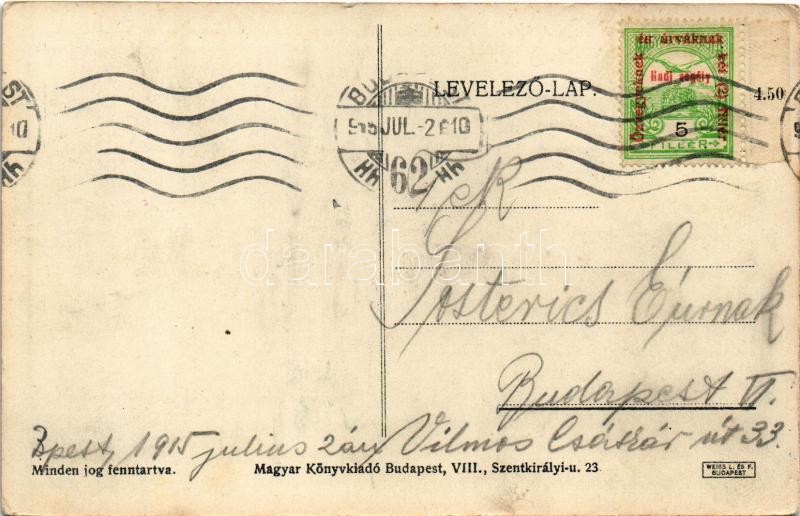 LEVELEZŐ-LAP.
4.50
Özvegyeknek és árváknak
Hadi segély
5
FILLÉR
BUDAPEST
915 JUL.-2
62
Gosterics Éurnak
Budapest VI.
Bpest, 1915 julius 2án Vilmos Császár út 33.
Minden jog fenntartva.
Magyar Könyvkiadó Budapest, VIII., Szentkirályi-u. 23.
WEISS L. ÉS F.
BUDAPEST
darabanth